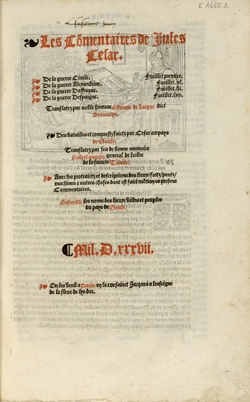 E 1665.2
Les Cõmentaires de Jules
Cesar.
De la guerre Civile. Fueillet premier.
De la guerre Alexandrine.
De la guerre Daffrique.
De la guerre Despaigne.
Translatez par noble homme Estienne de laigue dict
Beauvoys.
Des batailles et conquestz faictz par Cesar au pays
de Gaule.
Translatez par feu de bonne memoire
Robert gaguin general de lordre
de la saincte Trinite.
Avec les pourtraictz et descriptions des lieux, fortz, pontz,
machines, & autres choses dont est faict mẽtion es presens
Commentaires.
Ensemble les noms des lieux, Villes et peuples
du pays de Gaule.
Mil. D. xxxvii.
On les bend a Paris en la rue sainct Jacques a lenseigne
de la fleur de lys dor.